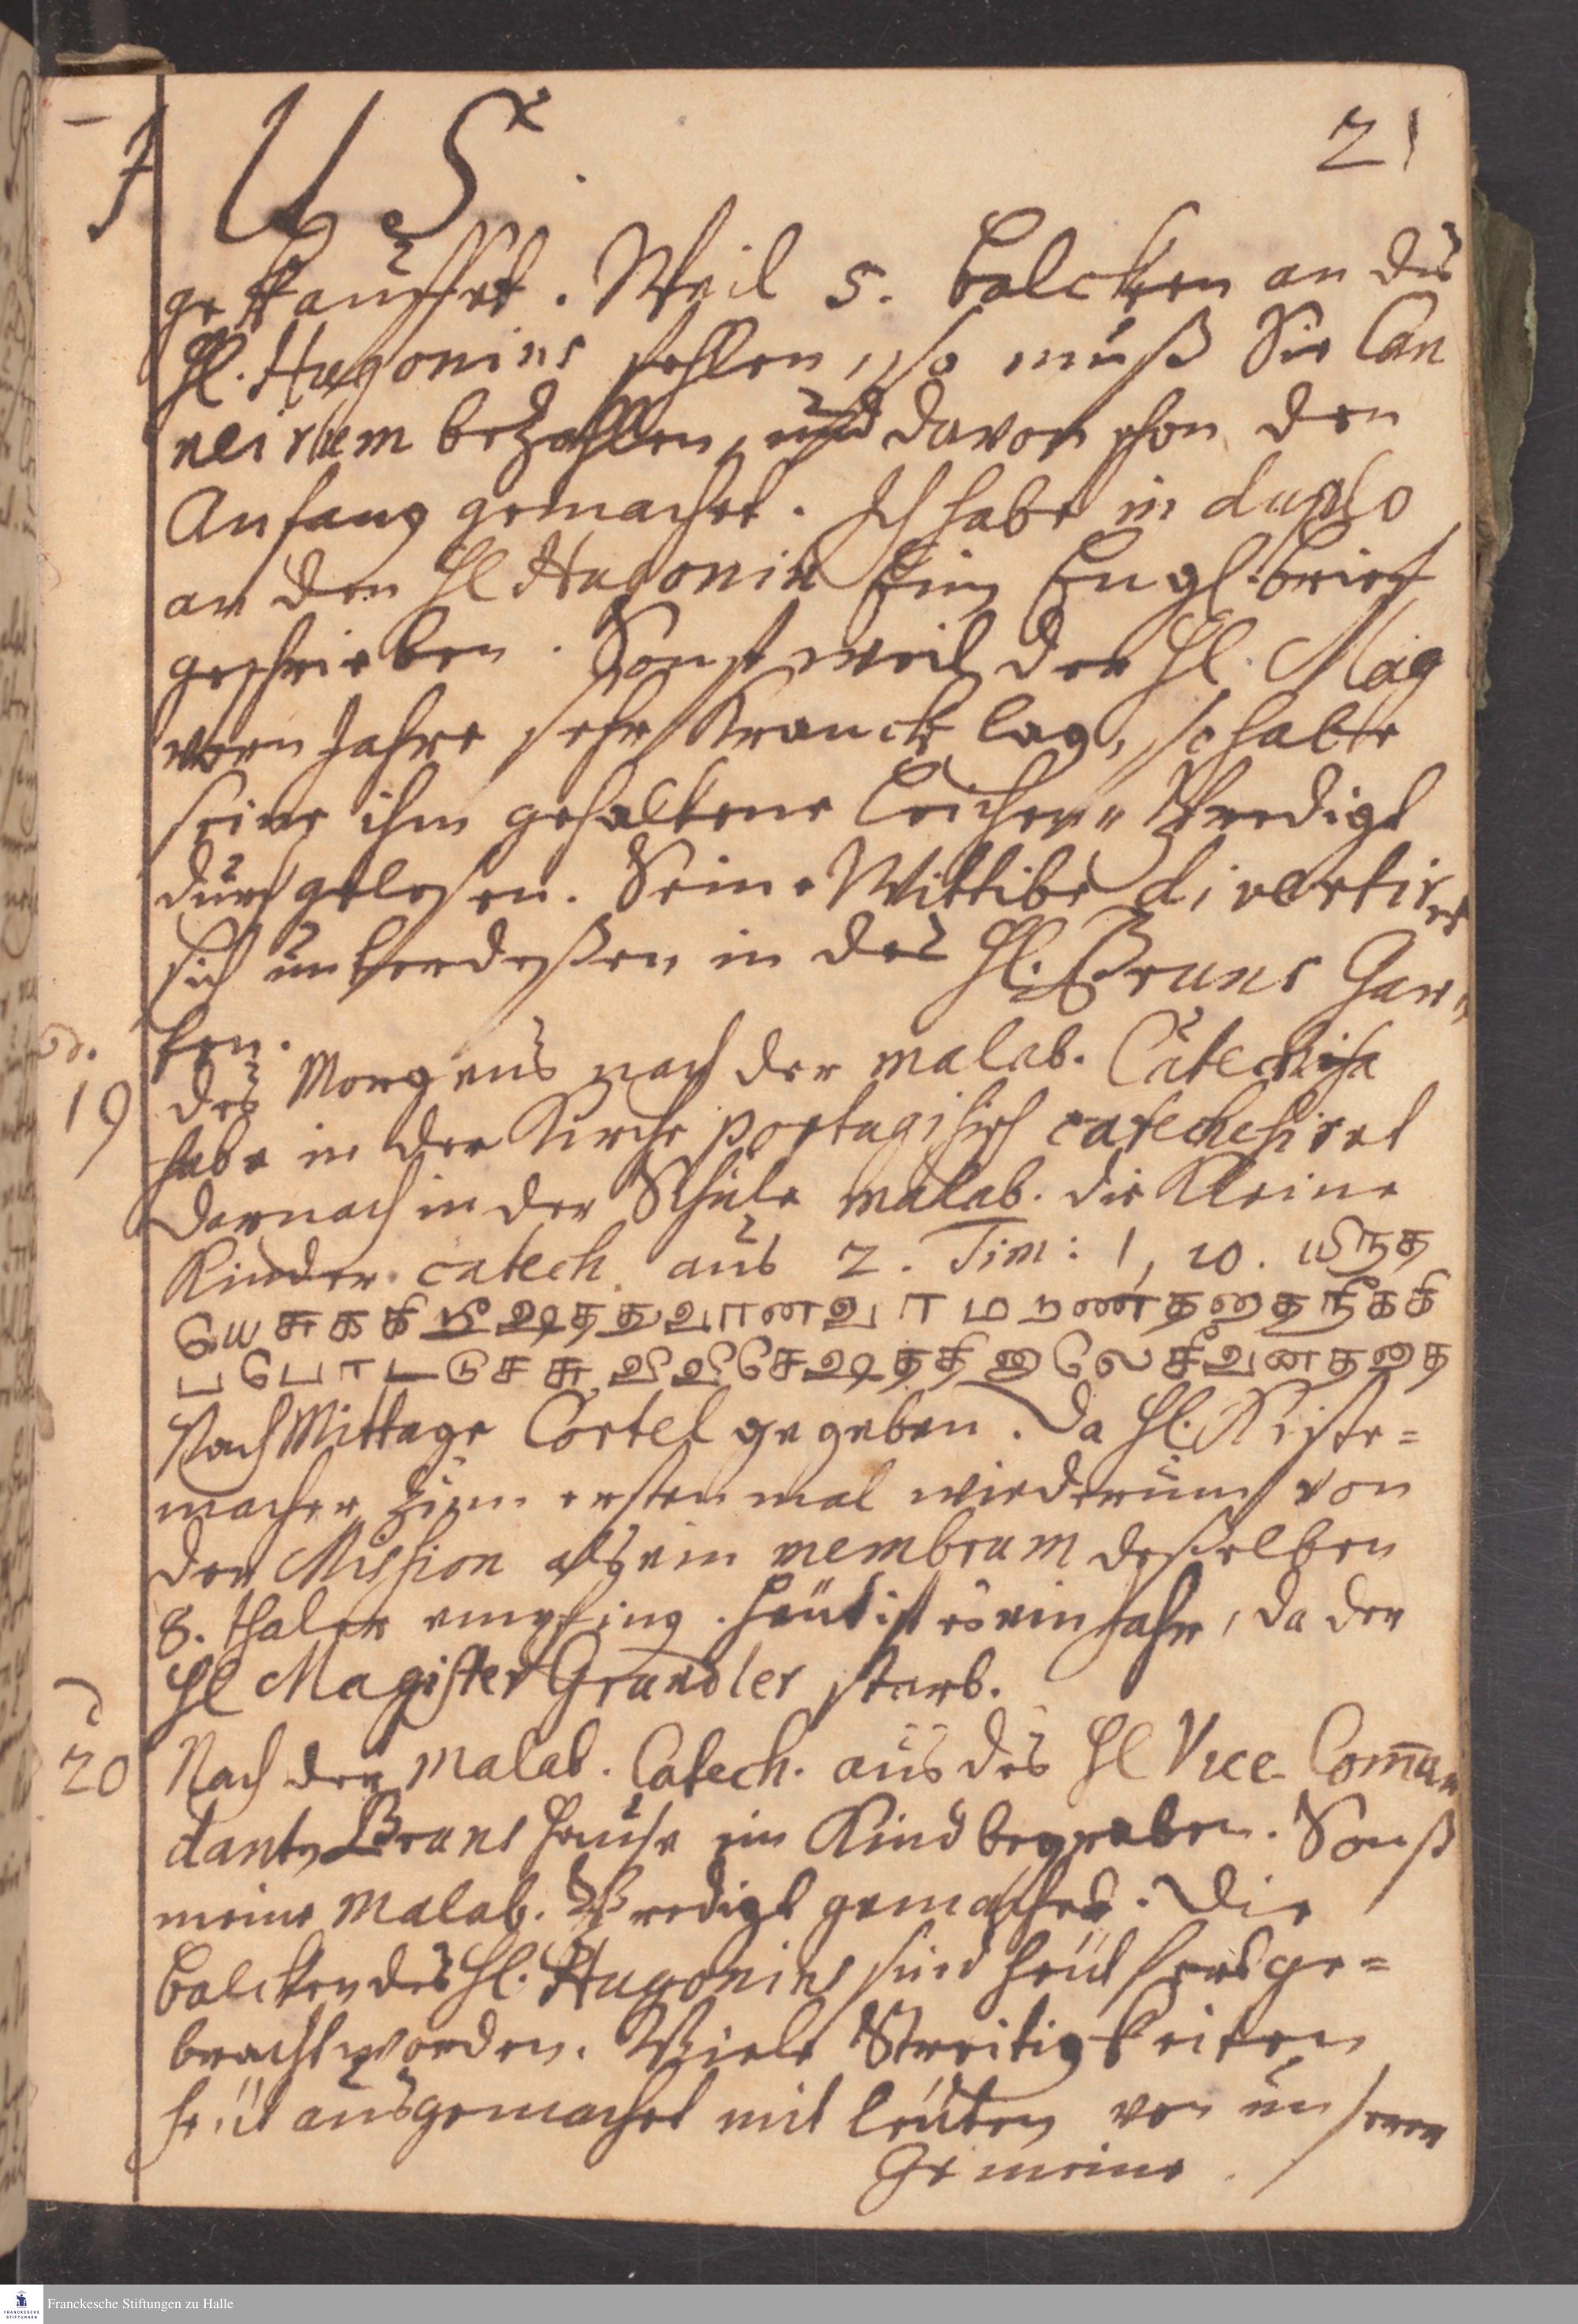 I US. 21
gekauffet. Weil 5. balcken an des
Hl. Hugonius fehlen, so muß Sie Can
neirum bezahlen, und davon schon den
Anfang gemachet. Ich habe in duplo
an den Hl Hugonin Ein Engl. brief
geschrieben. Sonst weil der Hl. Mag
vorn Jahre sehr Kranck lag, so habe
seine ihm gehaltene Leichen Predigt
durchgelesen. Seine Wittibe divertiret
sich unterdeßen in des Hl. Bruns Gar
ten.
d.
19 des Morgens nach der malab. Catechisa
habe in der Kirche portugisisch catechesiret
Darnach in der Schule malab. die Kleine
Kinder catech. aus 2. Tim: 1, 10.
Nach Mittage Cortel gegeben. Da Hl. Kiste=
macher zum ersten mal wiederum von
der Mission als ein membrum deßelben
8. thaler empfing. Heut ist es ein Jahr, da der
Hl Magister Grundler starb.
20 Nach der Malab. Catech. aus des Hl Vice Comman
dants Bruns Hause ein Kind begraben. Sonst
meine Malab. Predigt gemachet. Die
balcken des Hl. Hugonius sind heut herge=
bracht worden. Viele Streitigkeiten
heut ausgemachet mit leuten von unserer
Gemeine.
Franckesche Stiftungen zu Halle